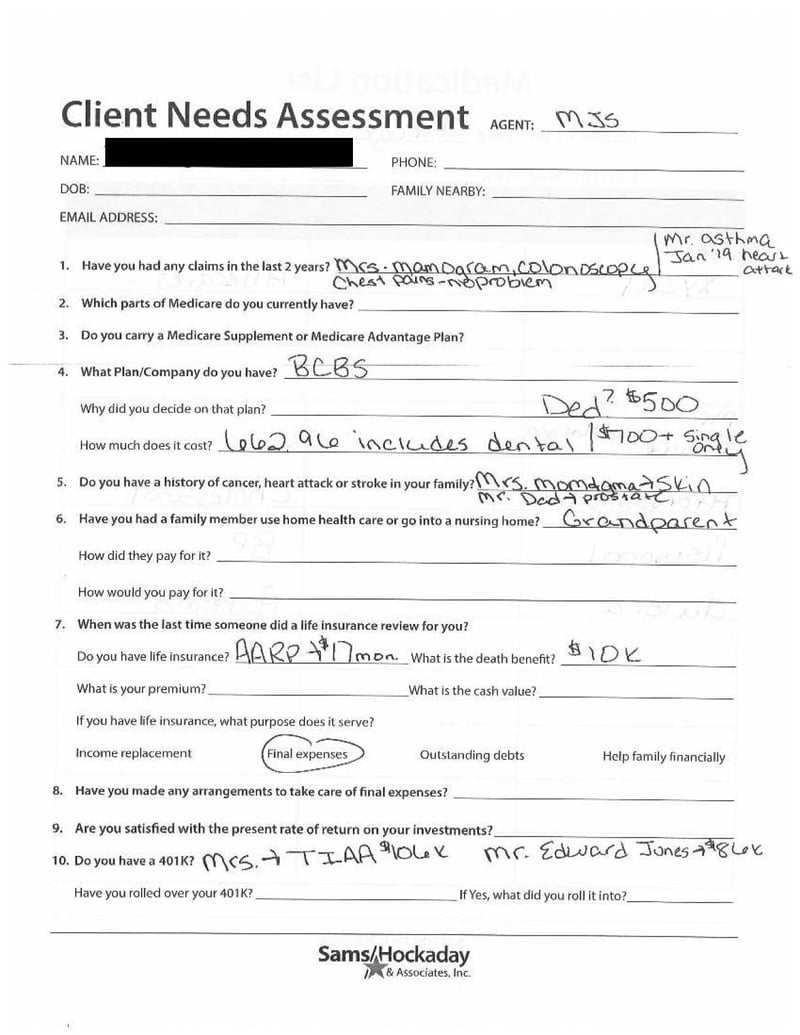 Client Needs Assessment AGENT: MJS
NAME: PHONE:
DOB: FAMILY NEARBY:
EMAIL ADDRESS:
Mr. asthma
Jan '19 heart
attack
1. Have you had any claims in the last 2 years? Mrs. - mamogram, colonoscopy
Chest pains - no problem
2. Which parts of Medicare do you currently have?
3. Do you carry a Medicare Supplement or Medicare Advantage Plan?
4. What Plan/Company do you have? BCBS
Why did you decide on that plan? Ded? $500
How much does it cost? 662.96 includes dental | $700+ single
only
5. Do you have a history of cancer, heart attack or stroke in your family? Mrs. mom+gma→skin
Mr. Dad→prostate
6. Have you had a family member use home health care or go into a nursing home? Grandparent
How did they pay for it?
How would you pay for it?
7. When was the last time someone did a life insurance review for you?
Do you have life insurance? AARP→$17mon. What is the death benefit? $10K
What is your premium? What is the cash value?
If you have life insurance, what purpose does it serve?
Income replacement Final expenses Outstanding debts Help family financially
8. Have you made any arrangements to take care of final expenses?
9. Are you satisfied with the present rate of return on your investments?
10. Do you have a 401K? Mrs.→TIAA $106K Mr. Edward Jones→$86K
Have you rolled over your 401K? If Yes, what did you roll it into?
Sams/Hockaday
& Associates, Inc.